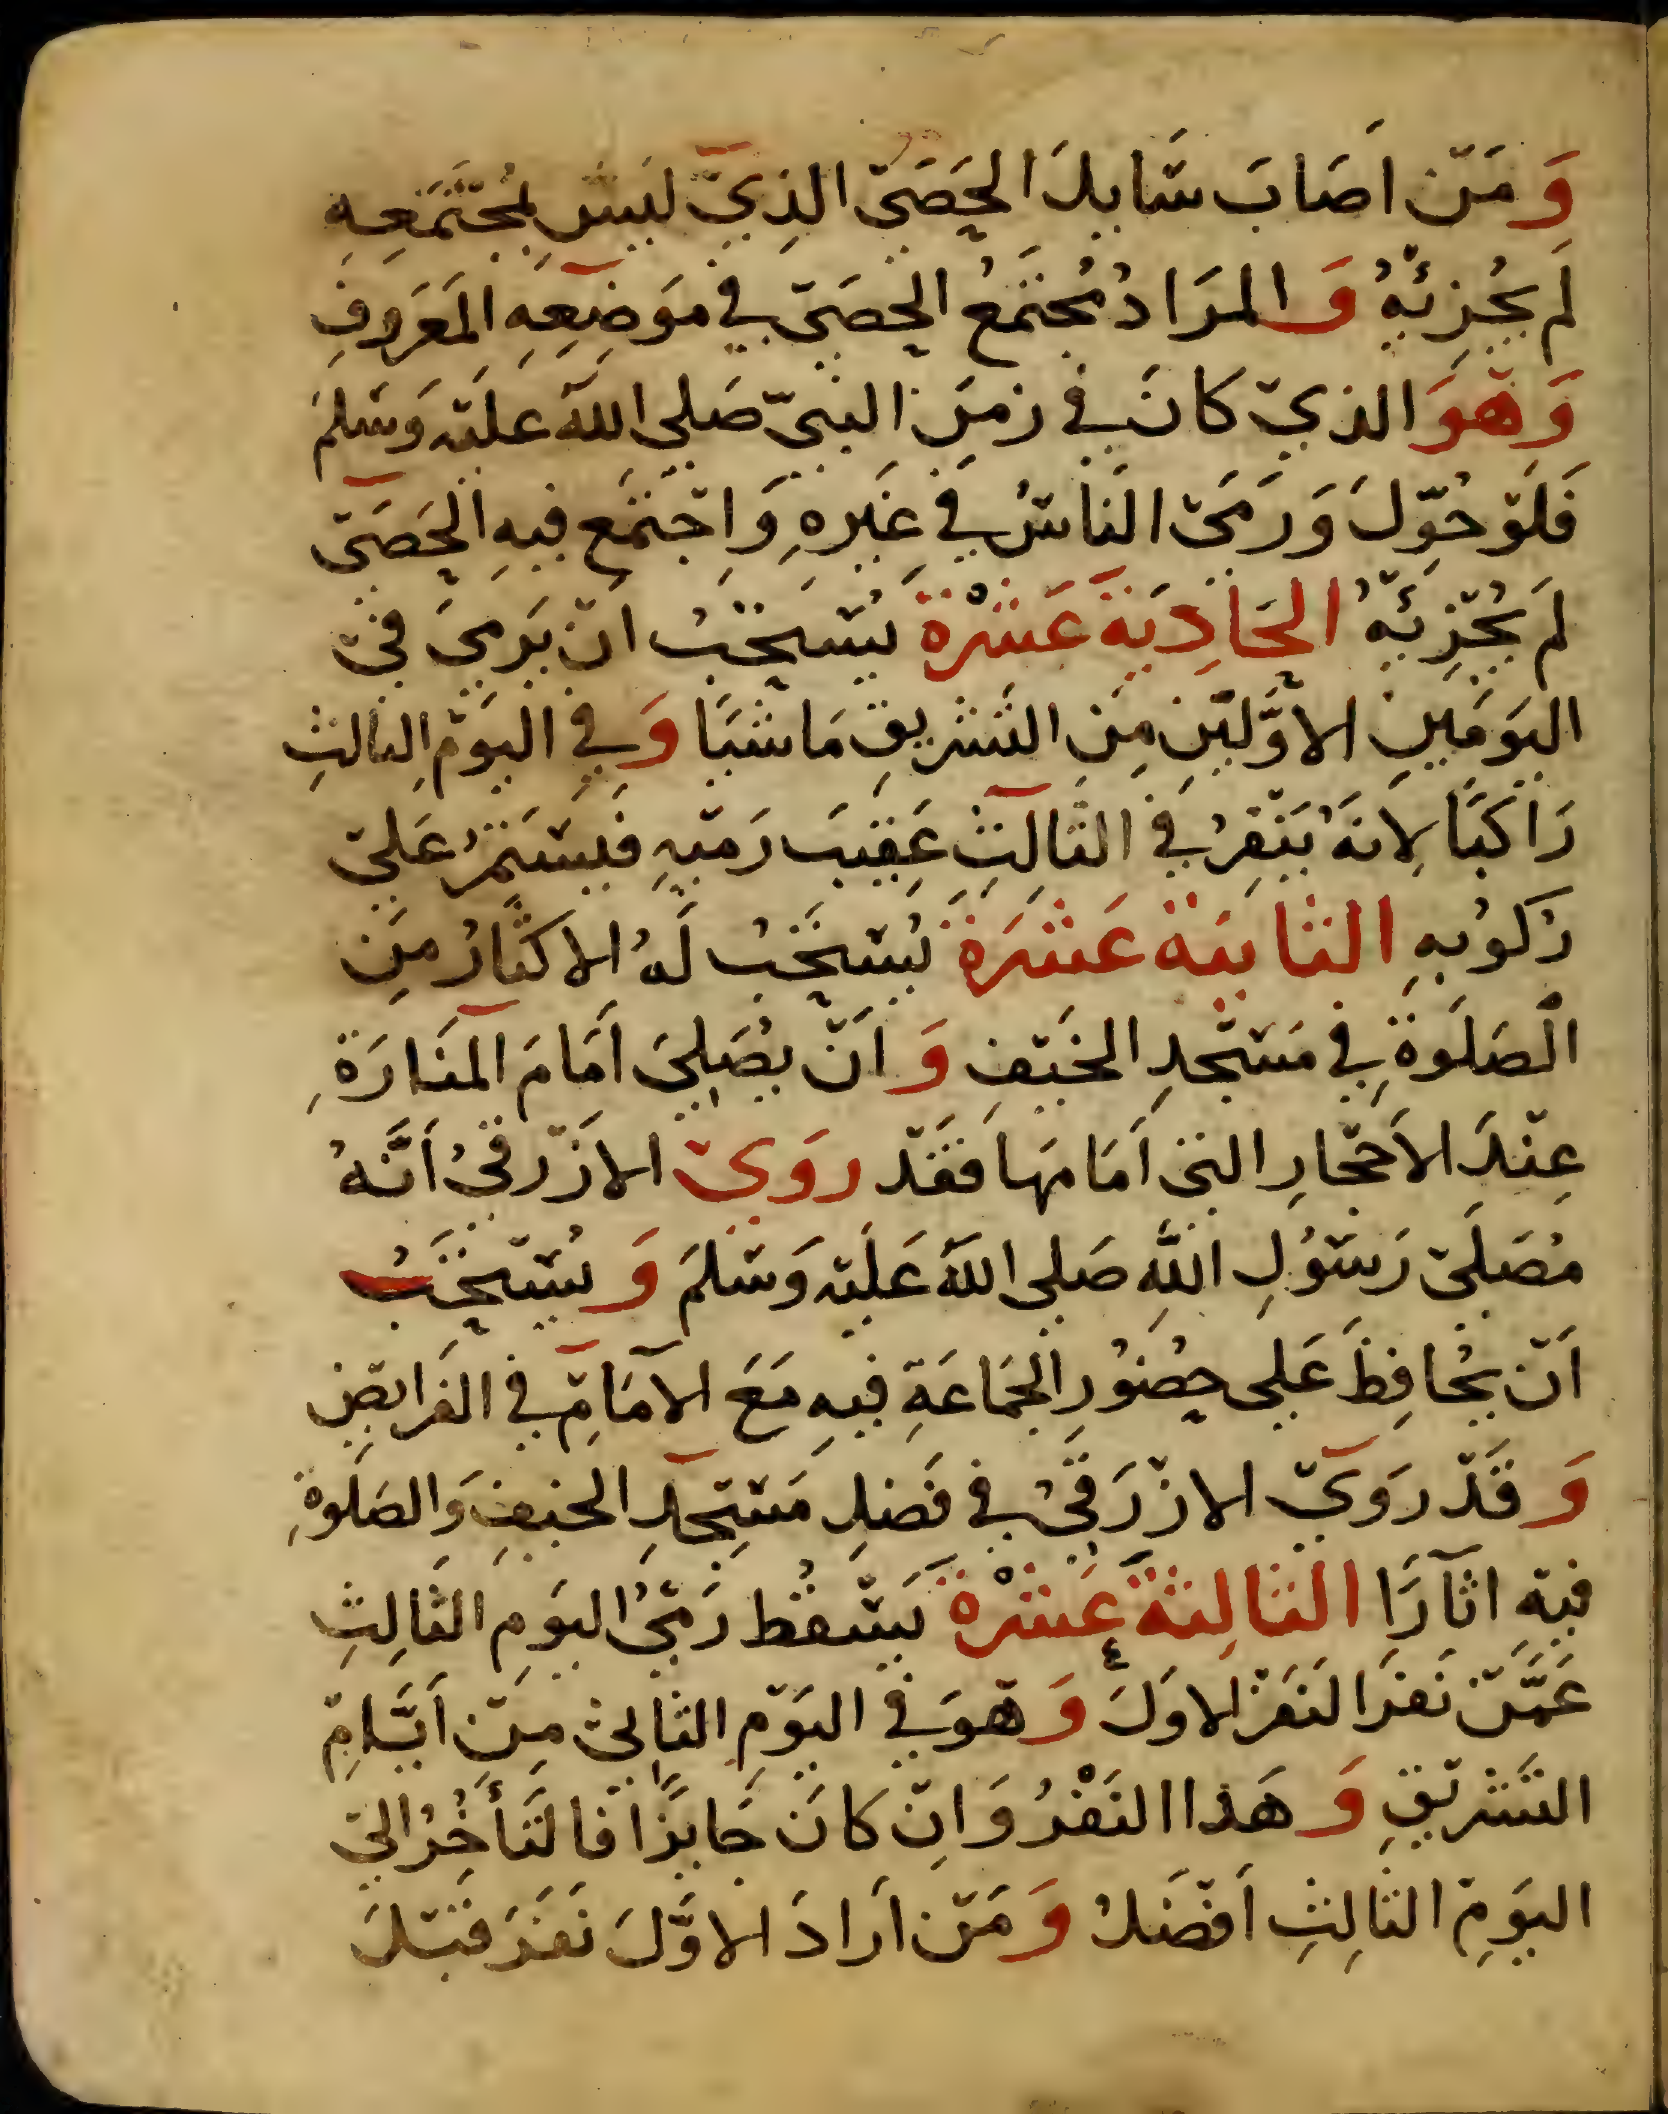 وَمَنْ اَصَابَ سَايِلَ الحَصَى الذِيْ لَيْسَ بِمُجْتَمَعِهِ
لَم يُجْزِئْهُ وَالمرَادُ مُجتَمَعُ الحَصَى في مَوضِعِهِ المَعَروفِ
وَهْوَ الذيْ كَانَ في زمَنِ النبيّ صَلى اللهُ عليْهِ وَسَلمَ
فَلَوْ حُوِّلَ وَرَمَى النَاسُ في غَيرهِ وَاجْتَمَع فيهِ الحَصَى
لَم يُجْزِئْهُ الحَادِيَةَ عَشْرَةَ يُسْتَحَبُ انْ يَرمىَ فىْ
اليَومَينِ الاوَّليْنِ مِنَ التَشريقِ مَاشيًا وَفي اليَوْمِ الثالثِ
رَاكبًا لِانَهُ يَنْفِرُ في الثالثِ عَقِيبَ رَمْيِهِ فيَسْتَمرُ عَلىْ
رُكوُبهِ الثانيَة عَشَرَةَ يُسْتَحَبُ لَهُ الاكثارُ مِنَ
الصَلَوةِ في مَسْجدِ الخَيْفِ وَانْ يُصَلِيَ اَمَامَ المنَارَةِ
عِنْدَ الاَحْجارِ التى اَمَامَها فَقَدْ روَىْ الازْرَقىُ اَنَّهُ
مُصَلىْ رَسُوْلِ اللهِ صَلى اللهُ عَليْهِ وَسَلمَ وَيُسْتَحَبُ
اَنْ يُحافِظَ عَلى حضوُرِ الجمَاعَةِ فيهِ مَعَ الامَامِ في الفَرايْضِ
وَقَدْ روَيْ الازْرَقىُ في فَضلِ مَسْجدِ الخيفِ وَالصَلوةِ
فيهِ اثآرًا الثالِثةَ عَشْرَةَ يَسْقُط رَمْيُ اليَومِ الثَالِثِ
عَمَّنْ نَفرَ النَفرَ الاوَلَ وَهْوَ في اليَوْمِ الثانىْ مِنْ اَيَّامِ
التَشريْقِ وَهَذا النَفْرُ وَانْ كانَ جَايزًا فالتَأخُرُ الىْ
اليَومِ الثالِثِ اَفْضَلُ وَمَنْ اَرادَ الاوَّلَ نَفَرَ قبْلَ